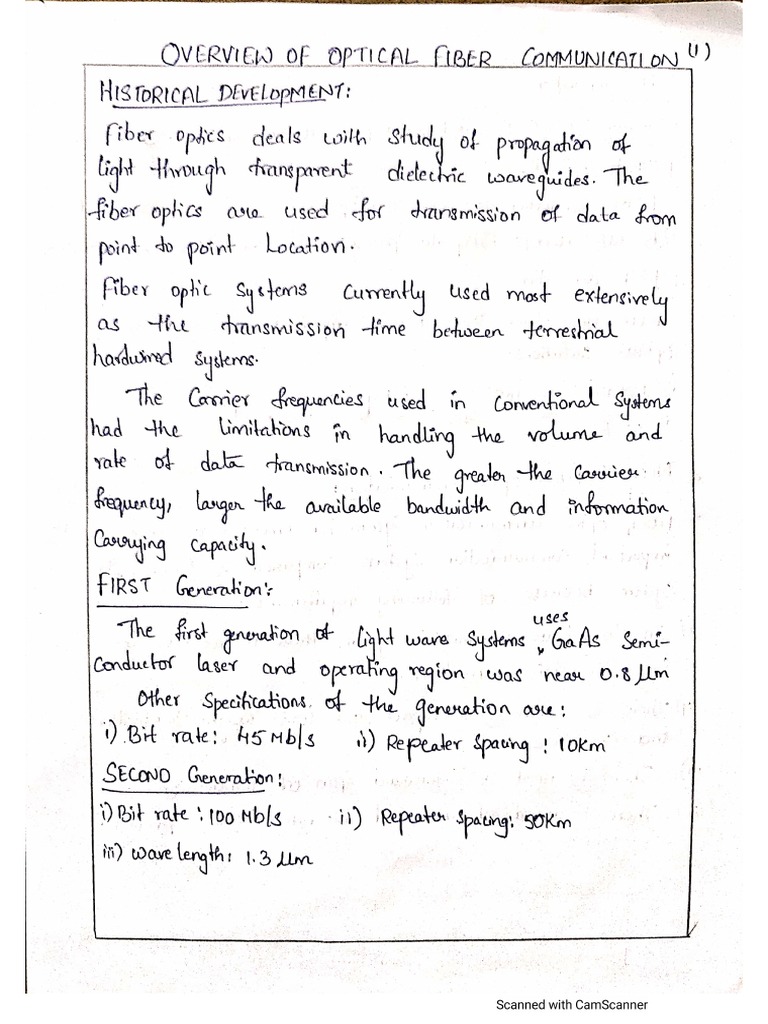 OVERVIEW OF OPTICAL FIBER COMMUNICATION (1)
HISTORICAL DEVELOPMENT:
Fiber optics deals with study of propagation of
light through transparent dielectric waveguides. The
fiber optics are used for transmission of data from
point to point Location.
Fiber optic systems currently used most extensively
as the transmission time between terrestrial
hardwired systems.
The Carrier frequencies used in Conventional Systems
had the limitations in handling the volume and
rate of data transmission. The greater the carrier
frequency, larger the available bandwidth and information
Carrying capacity.
FIRST Generation:
uses
The first generation of light wave systems GaAs Semi-
Conductor laser and operating region was near 0.8 μm
Other Specifications of the generation are:
i) Bit rate: 45 Mb/s ii) Repeater Spacing : 10Km
SECOND Generation:
i) Bit rate : 100 Mb/s ii) Repeater Spacing: 50Km
iii) Wave length: 1.3 μm
Scanned with CamScanner